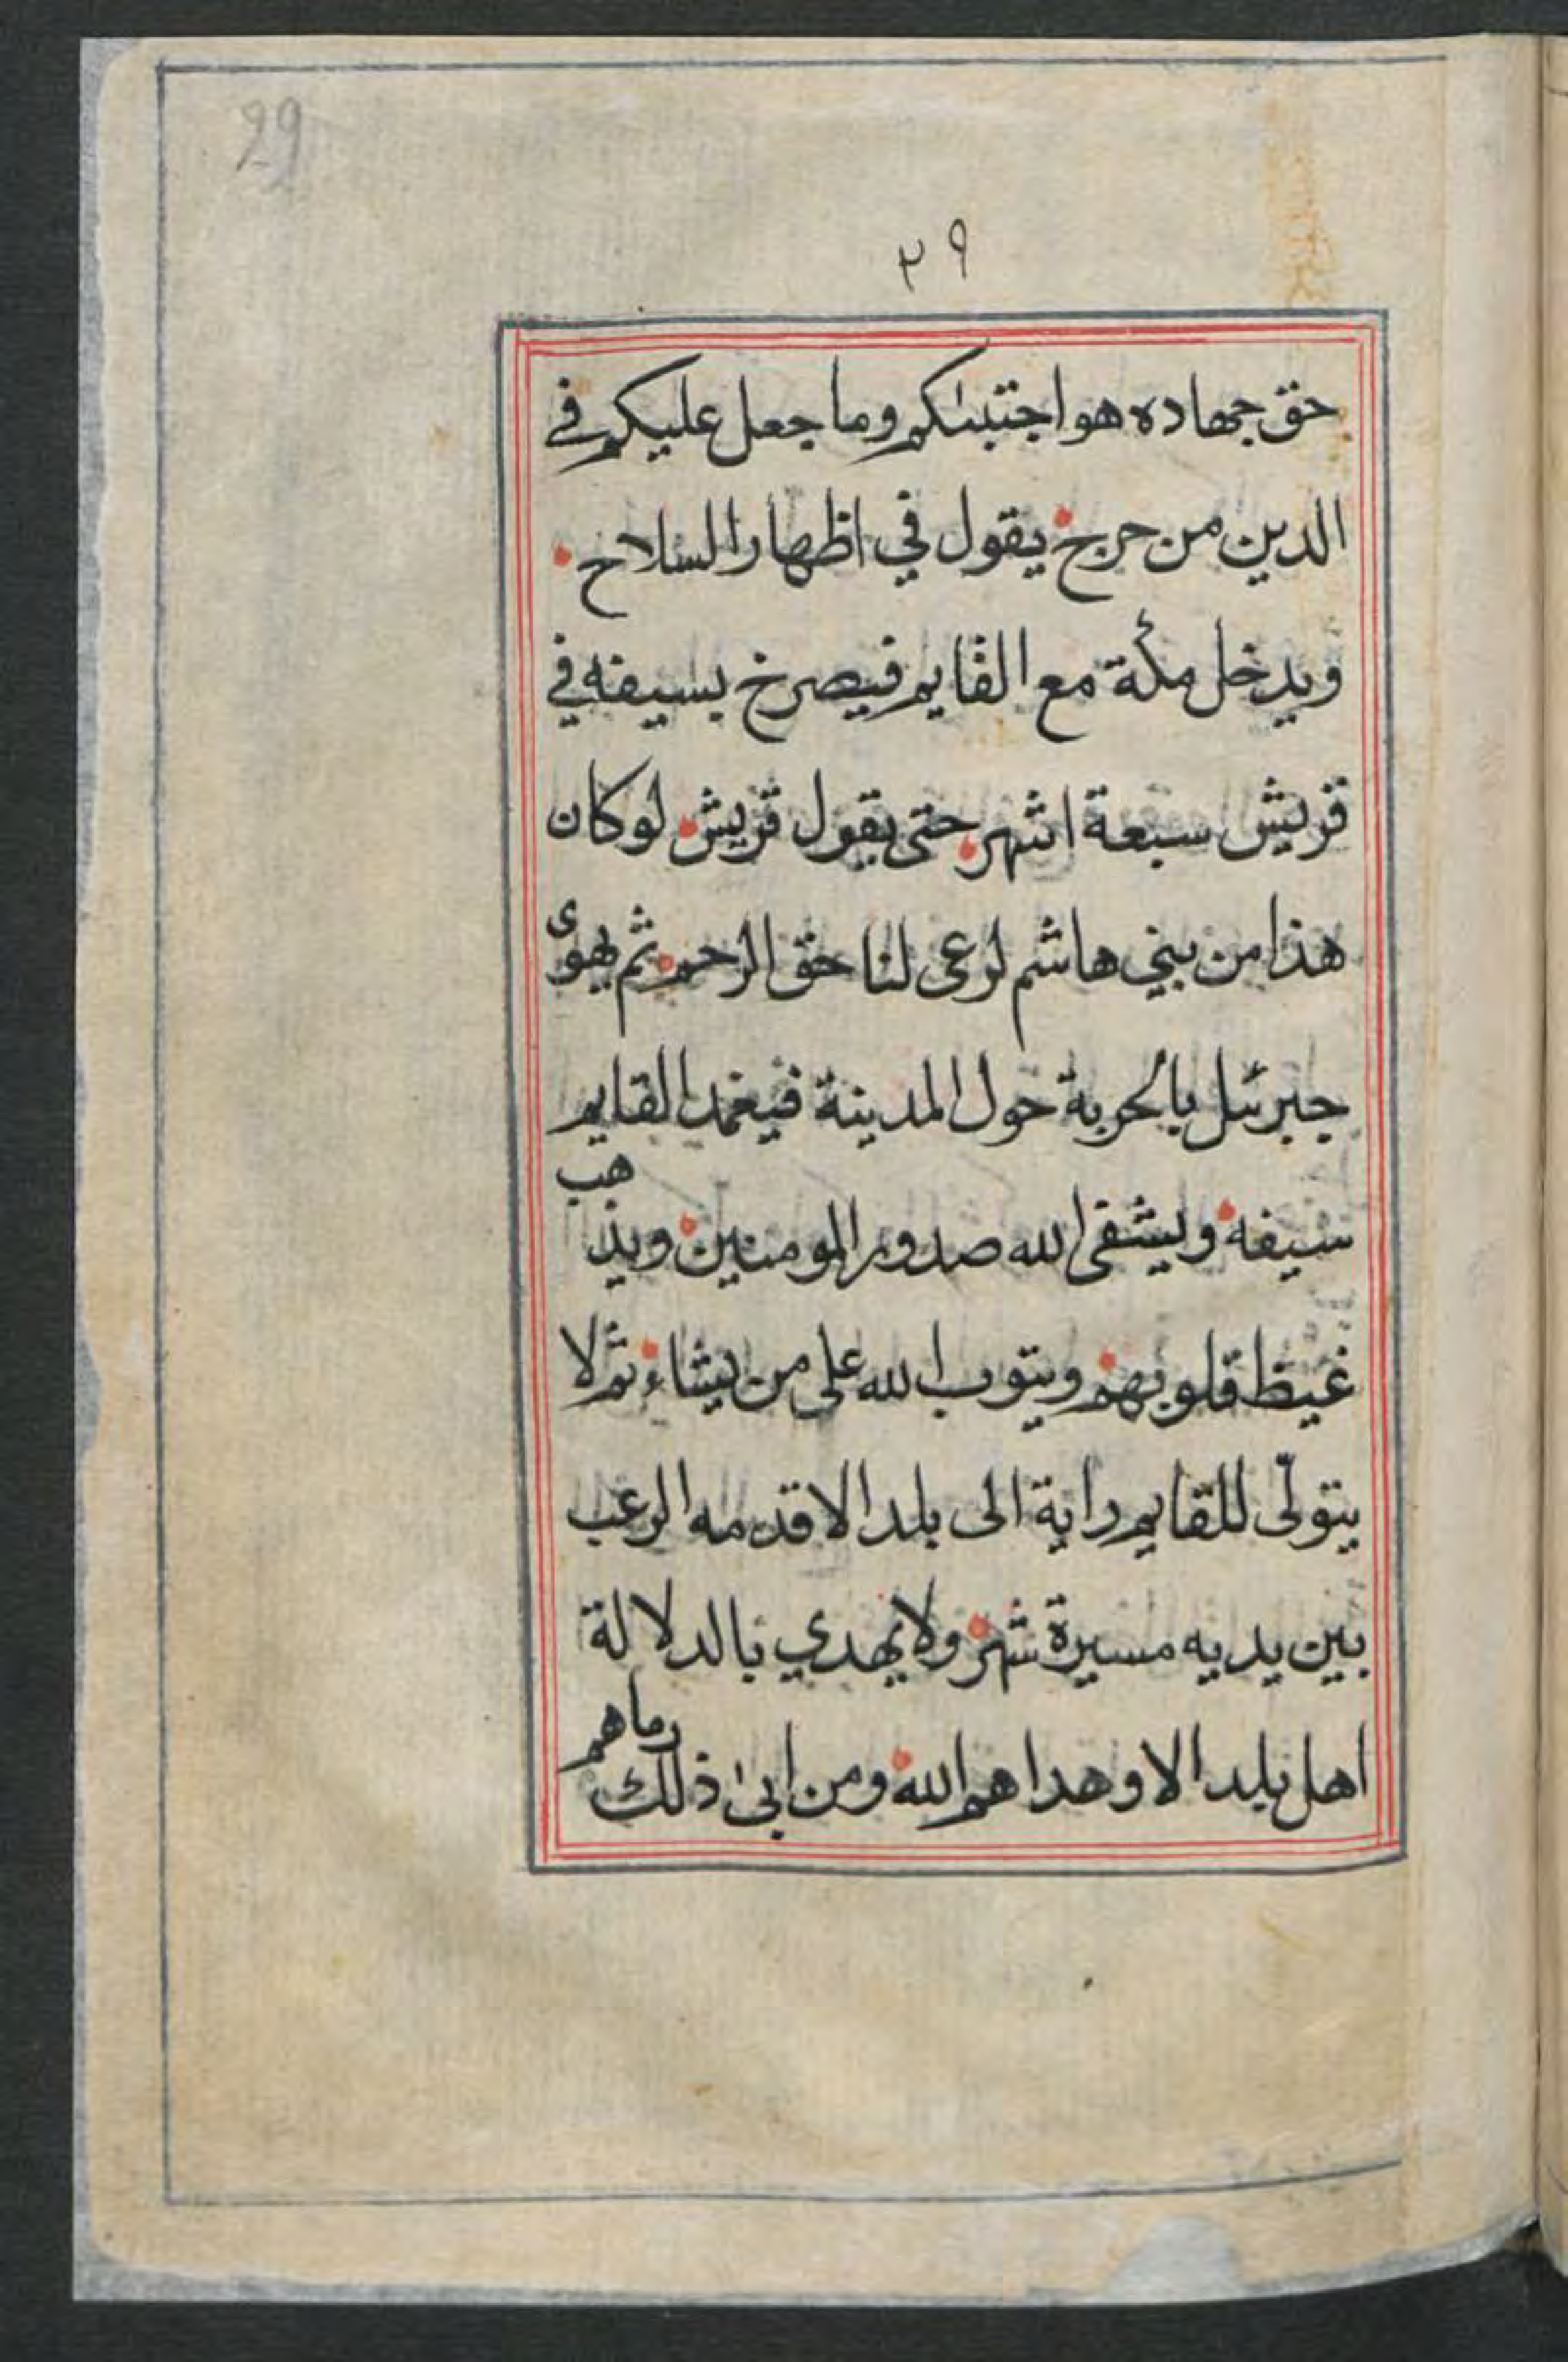 29
٢٩
حق جهاده هو اجتبىٰكم وما جعل عليكم في
الدين من حرج يقول في اظهار السلاح
ويدخل مكة مع القايم فيصرخ بسيفه في
قريش سبعة اشهر حتى يقول قريش لو كان
هذا من بني هاشم لرعى لنا حق الرحم ثم يهوى
جبرئيل بالحربة حول المدينة فيغمد القايم
سيفه ويشفى الله صدور المومنين ويذهب
غيظ قلوبهم ويتوب الله على من يشاء ثم لا
يتولّى للقايم راية الى بلد الا قدمه الرعب
بين يديه مسيرة شهر ولا يهدي بالدلالة
اهل بلد الا وهداهم الله ومن ابىٰ ذلك رماهم